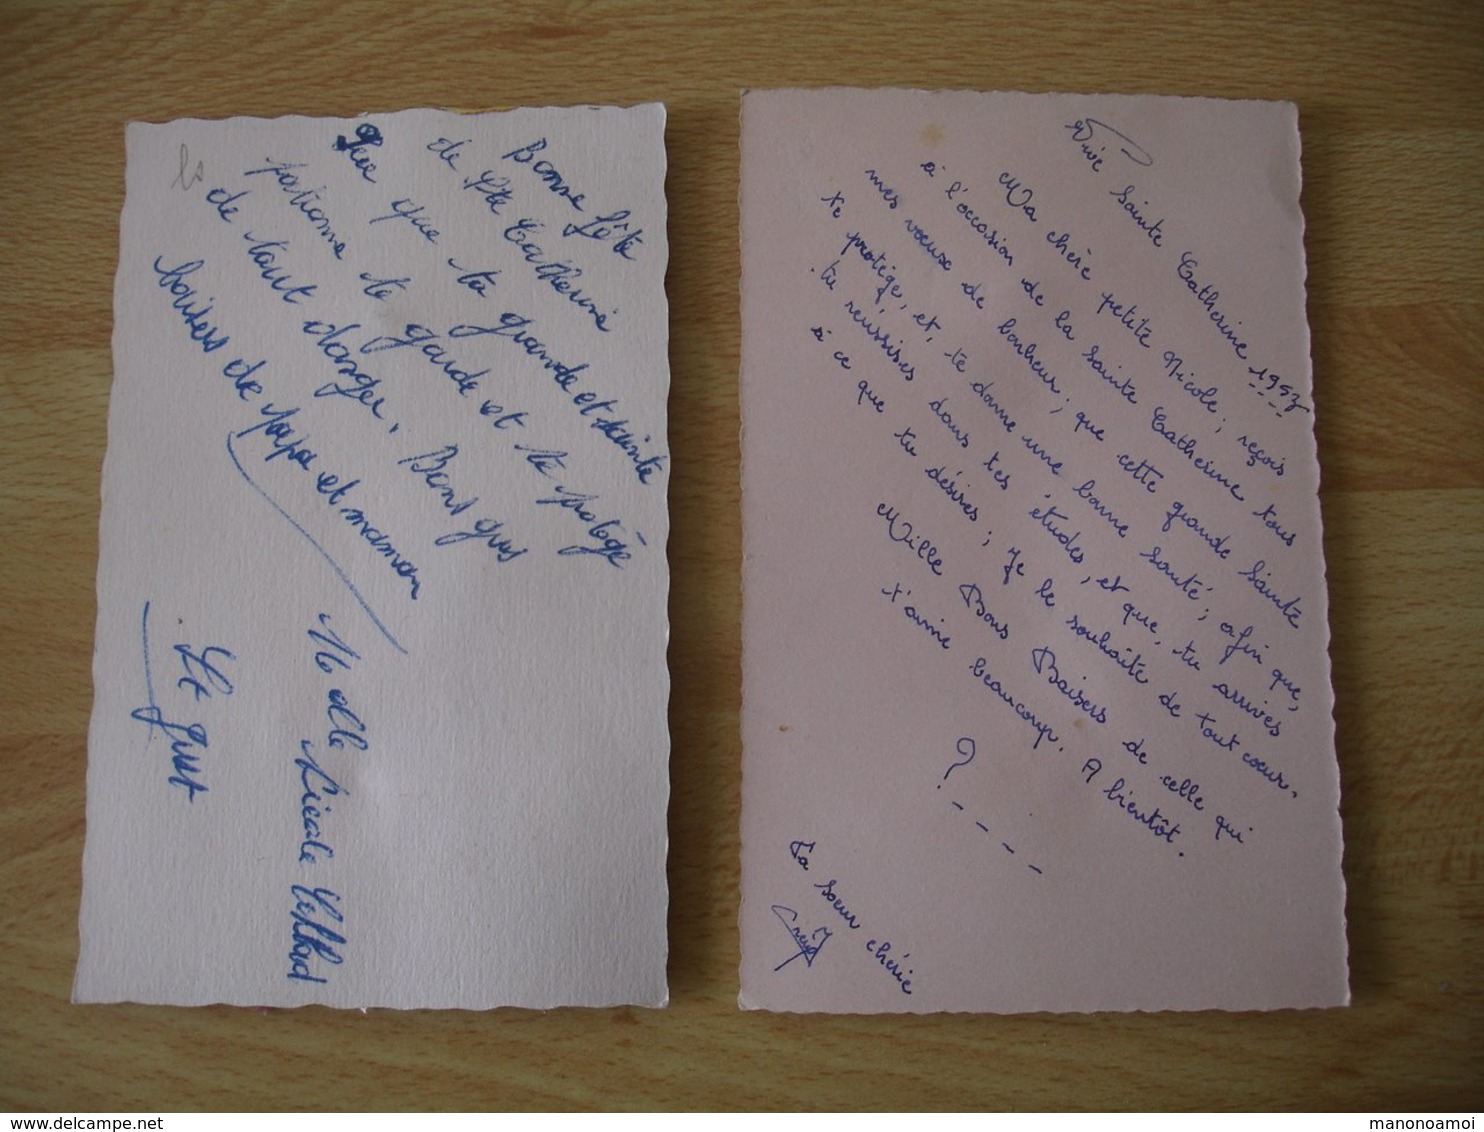 Bonne fête
de Ste Catherine
Que que ta grande et sainte
patronne te garde et te protège
de tout danger. Bons gros
baisers de papa et maman
Melle Nicole
St Just
Vive Sainte Catherine 1957
Ma chère petite Nicole; reçois
à l'occasion de la Sainte Catherine tous
mes voeux de bonheur; que cette grande Sainte
te protège, et, te donne une bonne santé; afin que,
tu réussises dans tes études, et que, tu arrives
à ce que tu désires; Je le souhaite de tout coeur.
Mille Bons Baisers de celle qui
t'aime beaucoup. A bientôt.
?----
Ta soeur chérie
manonoamoi